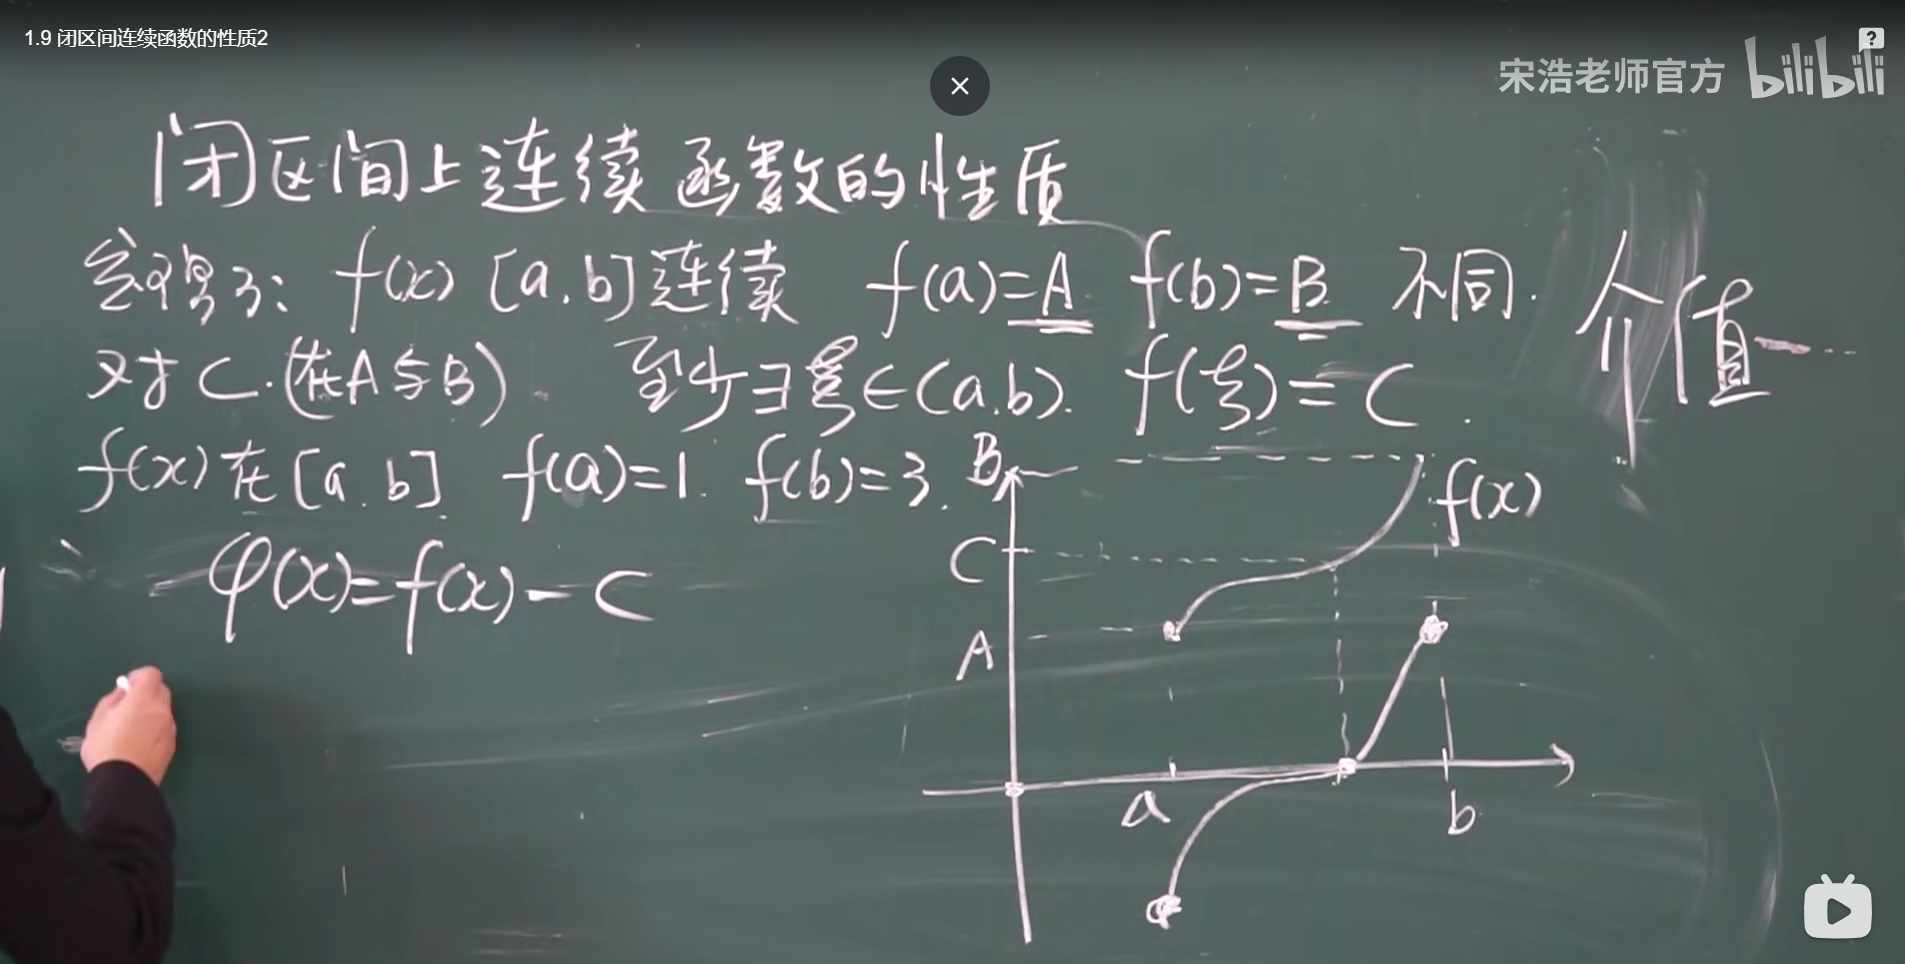 1.9 闭区间连续函数的性质2
宋浩老师官方 bilibili
闭区间上连续函数的性质
f(x) [a,b]连续 f(a)=A f(b)=B 不同. 介值
对C.(在A与B). 至少∃ξ∈(a,b). f(ξ)=C.
f(x)在[a,b] f(a)=1. f(b)=3.
φ(x)=f(x)-C
B
f(x)
C
A
a
b